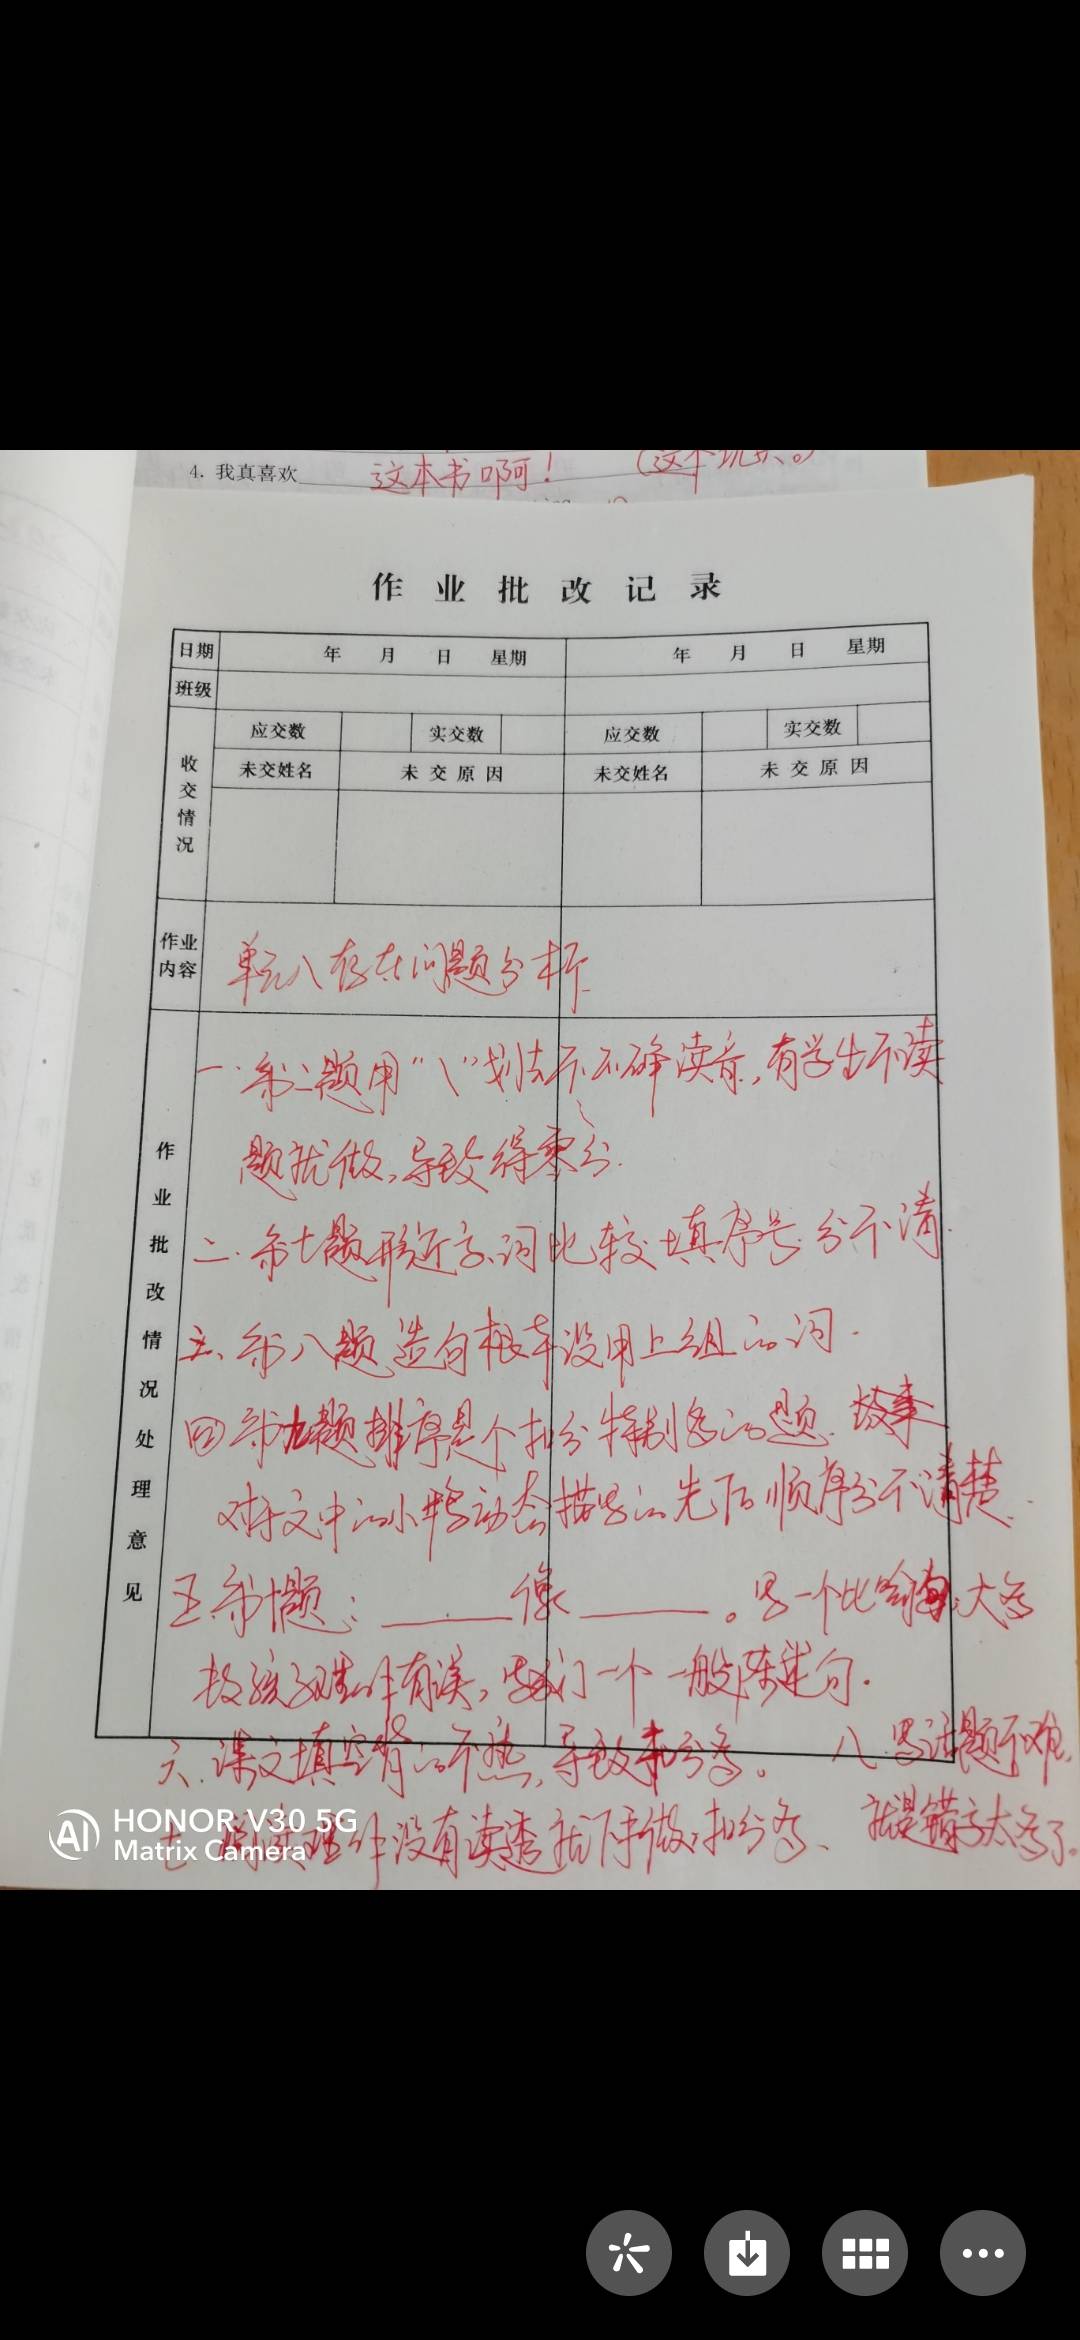 4. 我真喜欢 这本书啊！ (这个玩具。)
作业批改记录
日期 年 月 日 星期 年 月 日 星期
班级
收交情况 应交数 实交数 应交数 实交数
未交姓名 未交原因 未交姓名 未交原因
作业内容 单元八存在问题分析
作业批改情况处理意见
一.第二题用“\”划去不正确读音,有学生不读
题就做,导致得零分.
二.第七题形近字、词比较填序号分不清.
三、第八题造句根本没用上组的词.
四第九题排序是个扣分特别多的题. 故事
对于文中的小 动态描写的先后顺序分不清楚.
五第十题:____像____。是一个比喻句,大多
数孩子理解有误,写成了一个一般陈述句.
六.课文填空背的不熟,导致 分多。
八.写话题不难,
七 阅读理解没有读透就下手做,扣分多、
就是错字太多了。
HONOR V30 5G
Matrix Camera